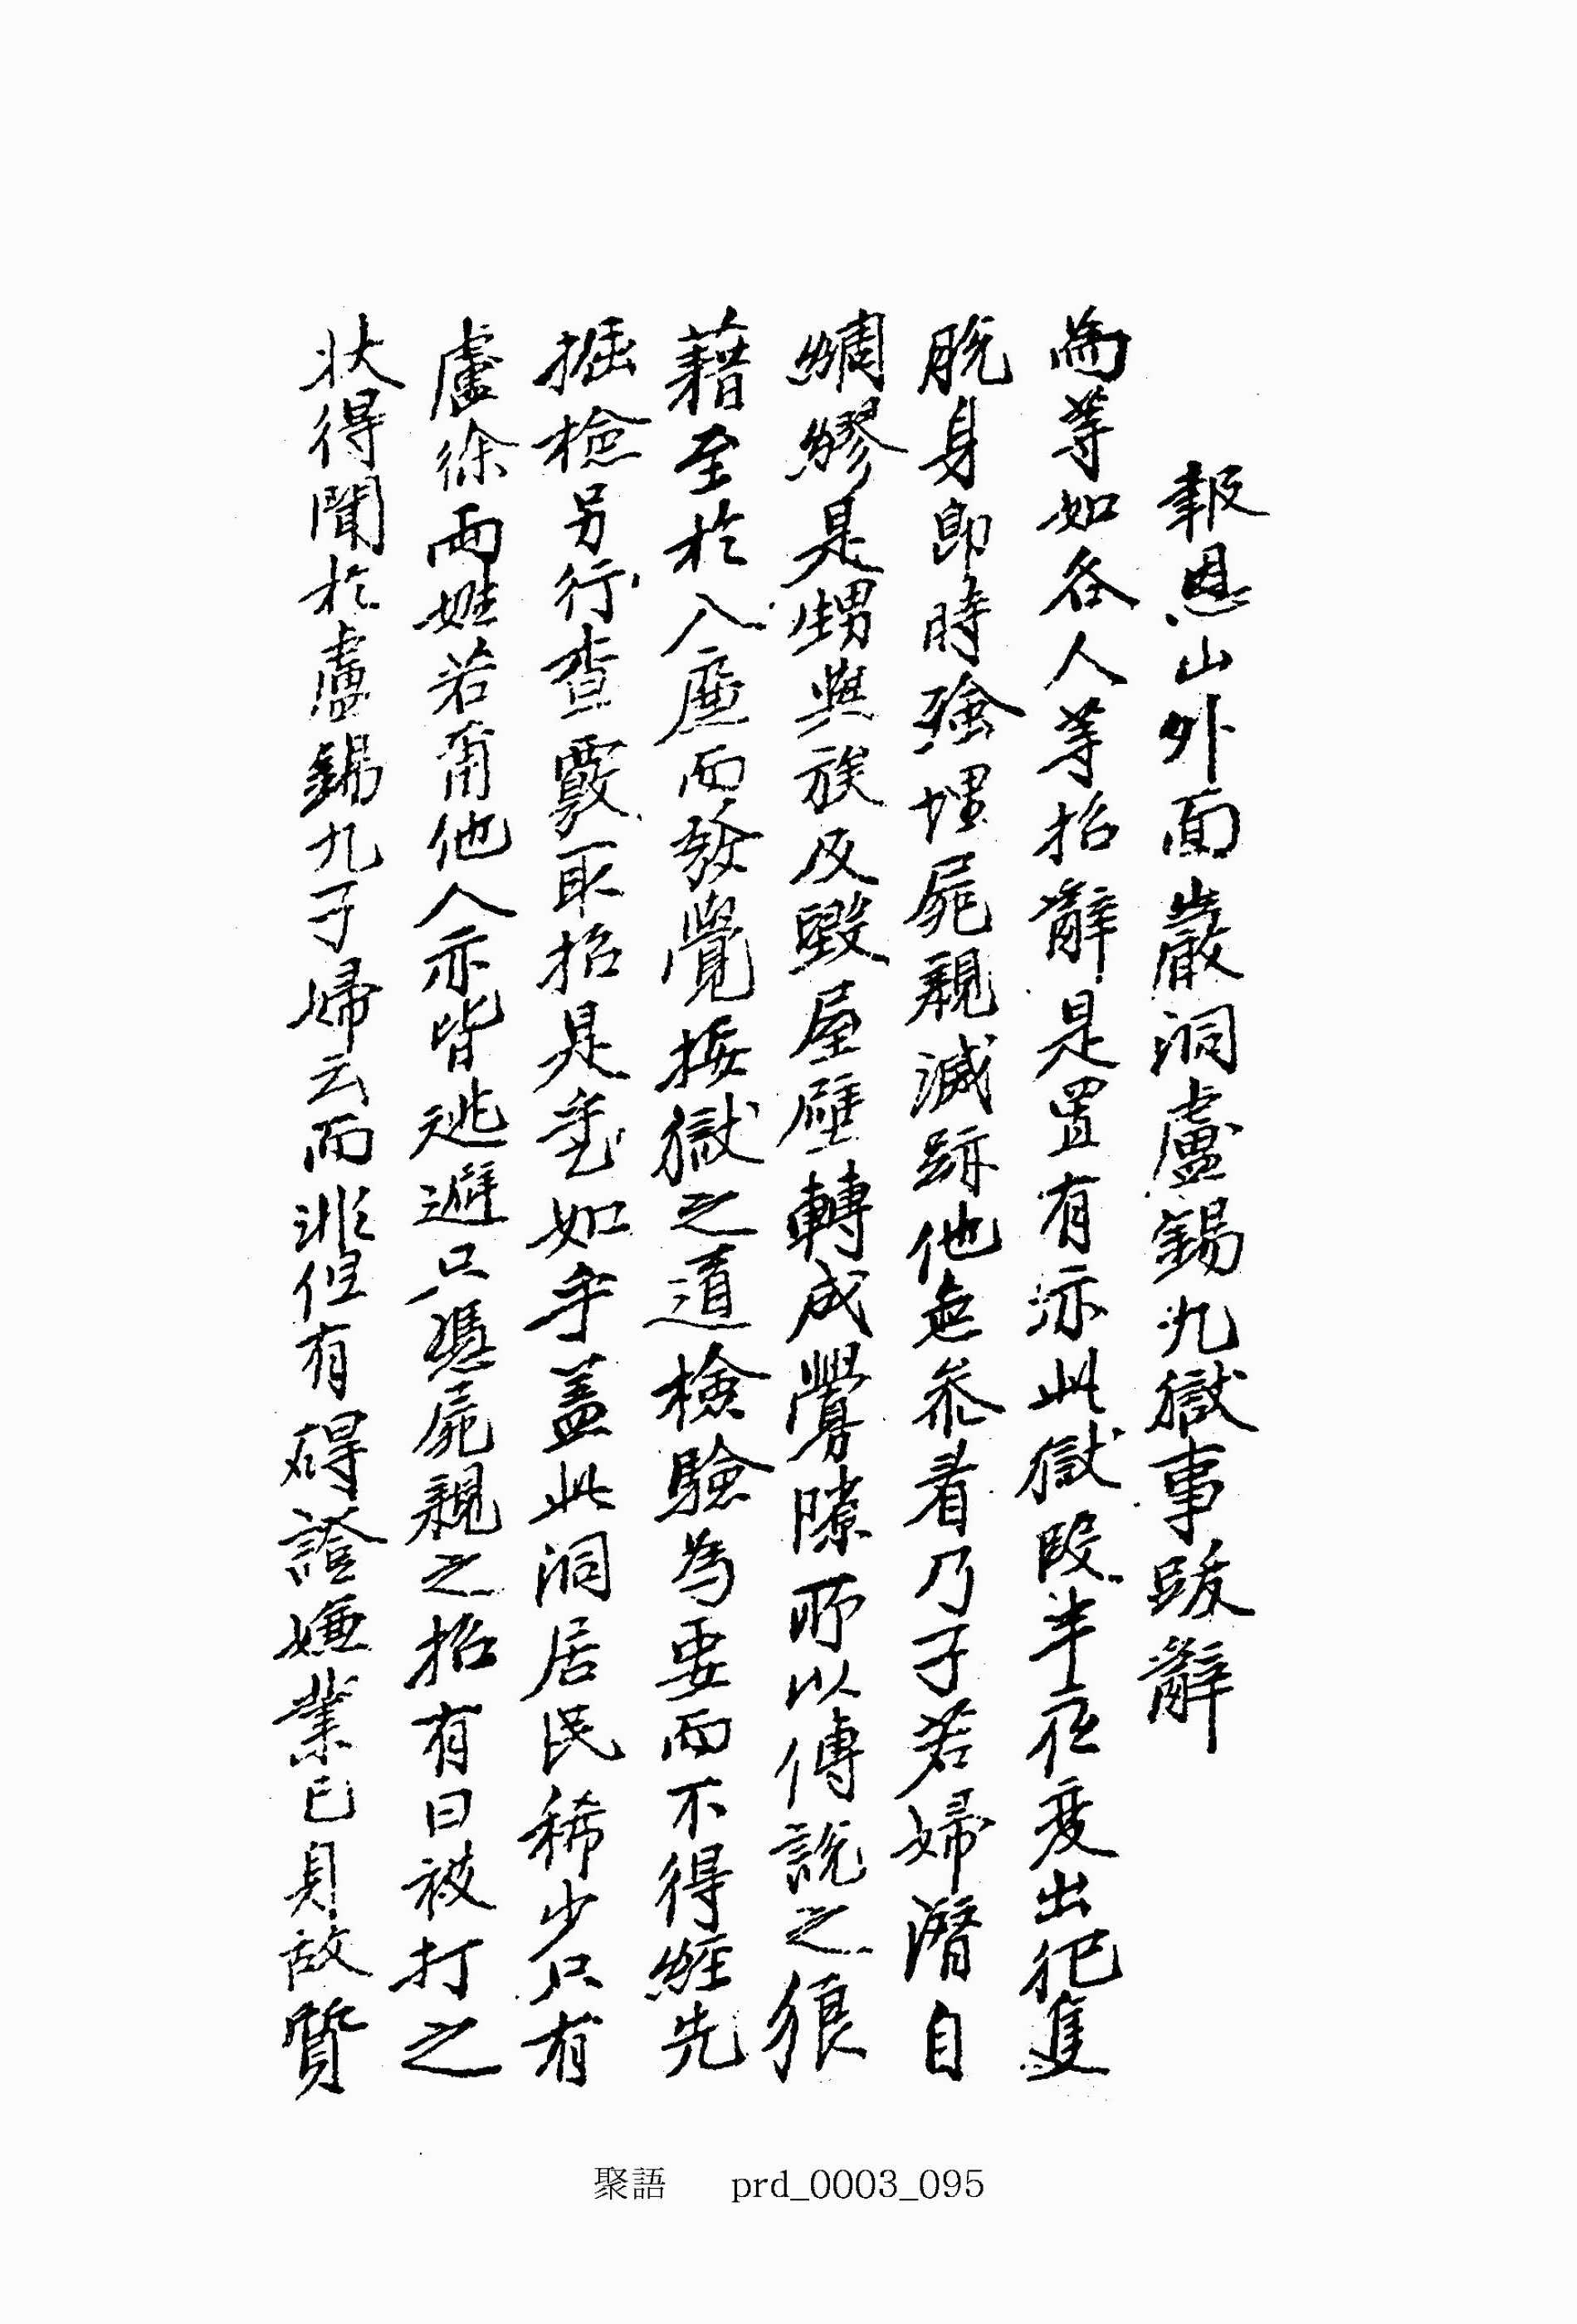 報恩山外面巖洞盧錫九獄事跋辭
爲等如各人等招辭是置有亦此獄段半夜変出犯隻
脫身卽時强埋屍親滅跡他無叅看乃子若婦潛自
綢繆是甥與族反毀屋壁轉成釁隙所以傳說之狼
藉至於入廉而發覺按獄之道檢驗爲要而不得經先
掘檢另行查覈取招是乎如乎盖此洞居民稀少只有
盧徐兩姓若甫他人亦皆逃避只憑屍親之招有曰被打之
狀得聞於盧錫九子婦云而非但有碍證嫌業已身故質
聚語 prd_0003_095